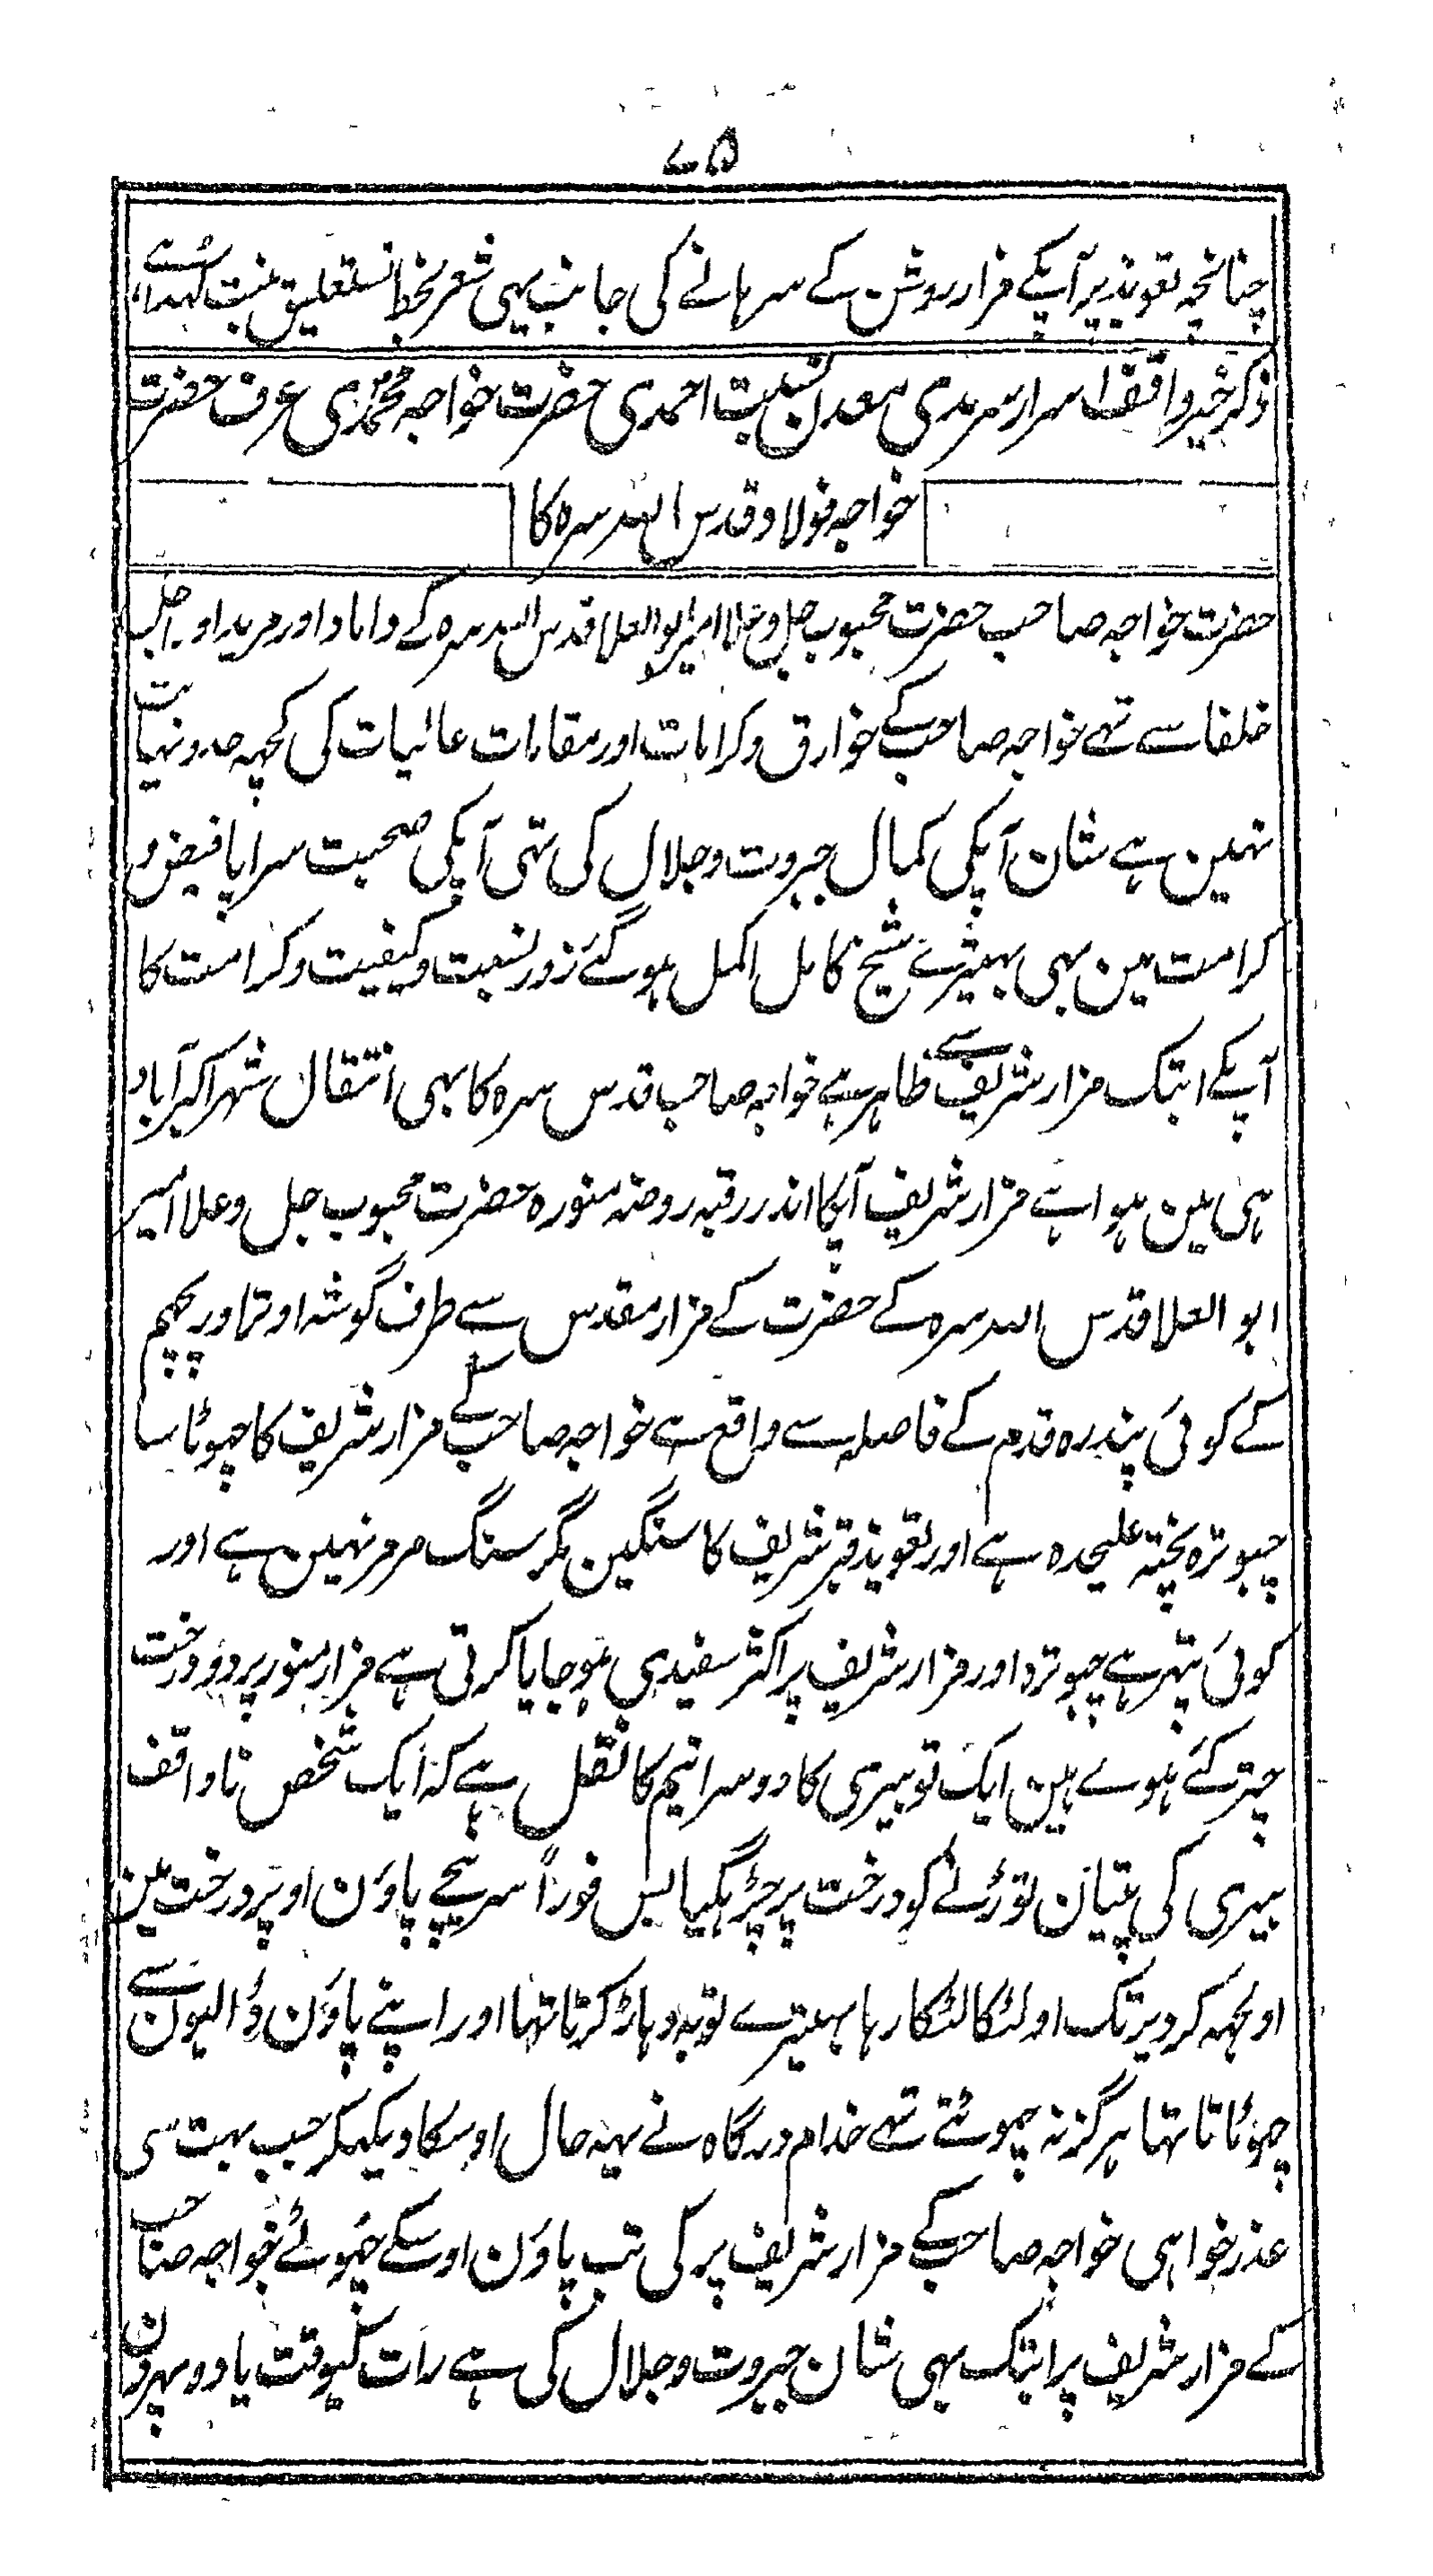 ۷۵
چنانچہ تعویذ پر آپکے مزار روشن کے سرہانے کی جانب یہی شعر بخط نستعلیق منبت کہدا ہے
ذکر خیر واقف اسرار سرمدی معدن نسبت احمدی حضرت خواجہ محمدی عرف حضرت
خواجہ فولاد قدس اللہ سرہ کا
حضرت خواجہ صاحب حضرت محبوب جل وعلا امیر ابوالعلا قدس اللہ سرہ کے داماد اور مرید اور اجلہ
خلفا سے تہے خواجہ صاحب کے خوارق وکرامات اور مقامات عالیات کی کچہہ حد ونہایت
نہین ہے شان آپکی کمال جبروت وجلال کی تہی آپکی صحبت سراپا فیض و
کرامت مین بہی بہیترے شیخ کامل اکمل ہوگئے زور نسبت وکیفیت وکرامت کا
آپکے ابتک مزار شریف سے ظاہر ہے خواجہ صاحب قدس سرہ کا بہی انتقال شہر اکبرآباد
ہی مین ہوا ہے مزار شریف آپکا اندر رقبہ روضہ منورہ حضرت محبوب جل وعلا امیر
ابوالعلا قدس اللہ سرہ کے حضرت کے مزار مقدس سے طرف گوشہ اوتر اور پچہم
کے کوئی پندرہ قدم کے فاصلہ سے واقع ہے خواجہ صاحب کے مزار شریف کا چہوٹا سا
چبوترہ پختہ علیحدہ ہے اور تعویذ قبر شریف کا سنگین مگر سنگ مرمر نہین ہے اور
کوئی پتہر ہے چبوترہ اور مزار شریف پر اکثر سفیدی ہوجایا کرتی ہے مزار منور پر دو درخت
چتر کئے ہوے ہین ایک تو بیری کا دوسرا نیم کا نقل ہے کہ ایک شخص ناواقف
بیری کی پتیان توڑنے کو درخت پر چڑہگیا بس فوراً سر نیچے پاؤن اوپر درخت مین
اولجہہ کر دیر تک اولٹکا لٹکا رہا بہیترے توبہ دہاڑ کرتا تہا اور اپنے پاؤن ڈالیون سے
چہوٹاتا تہا ہرگز نہ چہوٹتے تہے خدام درگاہ نے یہہ حال اوسکا دیکہکر جب بہت سی
عذر خواہی خواجہ صاحب کے مزار شریف پر کی تب پاؤن اوسکے چہوٹے خواجہ صاحب
کے مزار شریف پر ابتک یہی شان جبروت وجلال کی ہے رات کیوقت یا دوپہرون